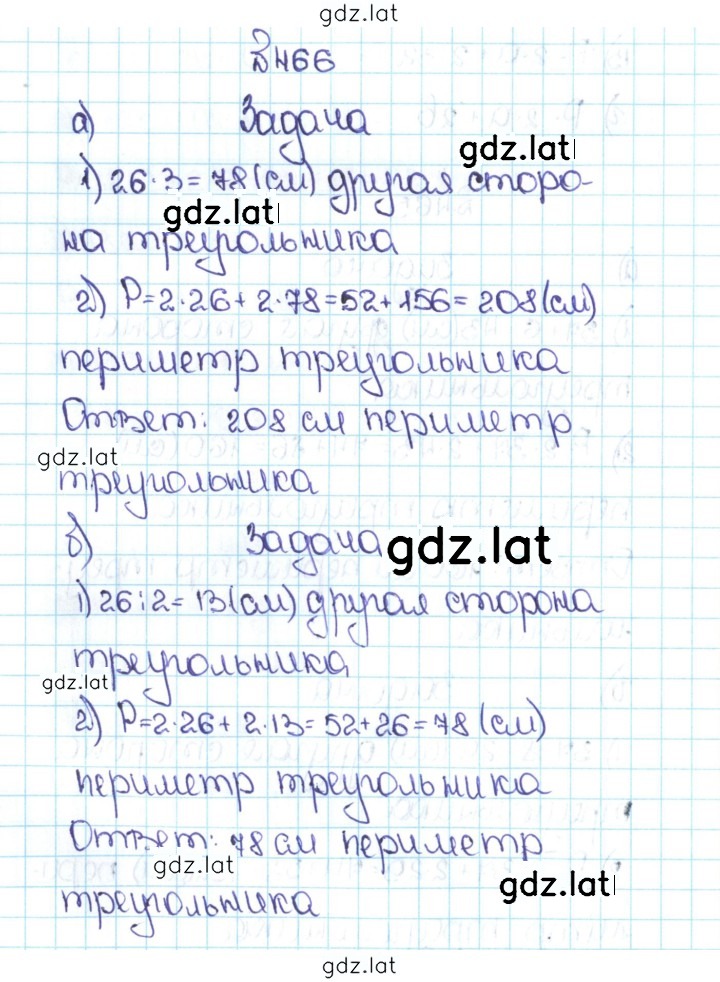 gdz.lat
№466
а) Задача
gdz.lat
1) 26·3=78(см) другая сторо-
gdz.lat
на треугольника
2) P=2·26+2·78=52+156=208(см)
периметр треугольника
Ответ: 208 см периметр
gdz.lat
треугольника
б) Задача gdz.lat
1) 26:2=13(см) другая сторона
треугольника
gdz.lat
2) P=2·26+2·13=52+26=78(см)
периметр треугольника
Ответ: 78 см периметр
gdz.lat
gdz.lat
треугольника
gdz.lat